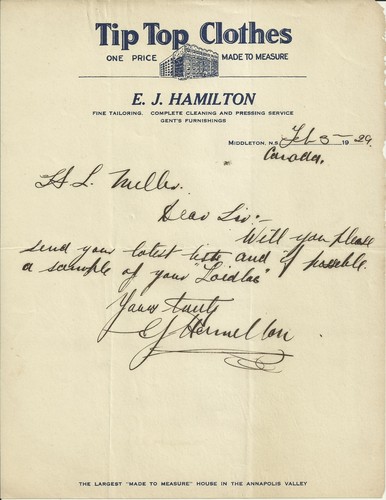 Tip Top Clothes
ONE PRICE MADE TO MEASURE
E. J. HAMILTON
FINE TAILORING. COMPLETE CLEANING AND PRESSING SERVICE
GENT'S FURNISHINGS
MIDDLETON, N.S. Feb 5 1929
Canada.
L. Miller.
Dear Sir:-
Will you please
send your latest and if possible
a sample of your "Laidlaw"
Yours truly
E J Hamilton
THE LARGEST "MADE TO MEASURE" HOUSE IN THE ANNAPOLIS VALLEY